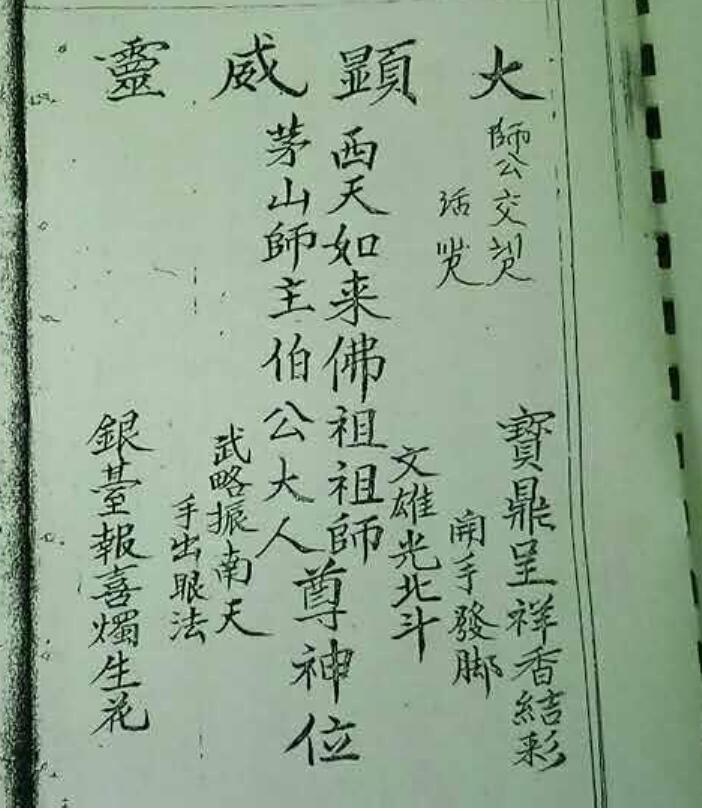 大顯威靈
師公交
活
寶鼎呈祥香結彩
開手發脚
文雄光北斗
西天如来佛祖祖師
茅山師主伯公大人
尊神位
武略振南天
手出眼法
銀臺報喜燭生花